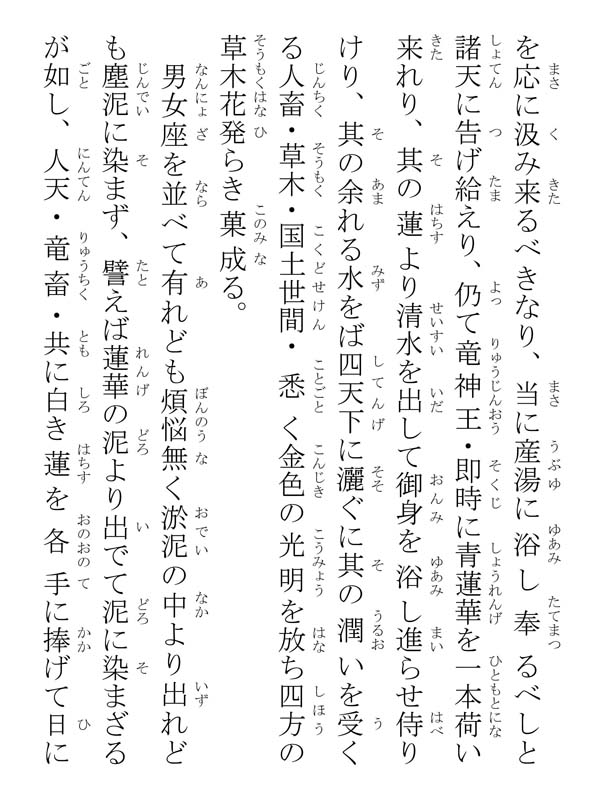 を応に汲み来るべきなり、当に産湯に浴し奉るべしと
諸天に告げ給えり、仍て竜神王・即時に青蓮華を一本荷い
来れり、其の蓮より清水を出して御身を浴し進らせ侍り
けり、其の余れる水をば四天下に灑ぐに其の潤いを受く
る人畜・草木・国土世間・悉く金色の光明を放ち四方の
草木花発らき菓成る。
男女座を並べて有れども煩悩無く淤泥の中より出れど
も塵泥に染まず、譬えば蓮華の泥より出でて泥に染まざる
が如し、人天・竜畜・共に白き蓮を各手に捧げて日に